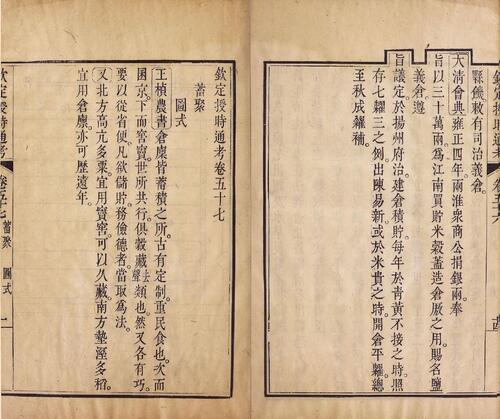 欽定授時通考 卷五十六
縣饑救有司治義倉。
大清會典雍正四年兩淮衆商公捐銀兩奉
旨以三十萬兩爲江南買貯米穀蓋造倉厫之用。賜名鹽
義倉。遵
旨議定於揚州府治建倉積貯。每年於靑黃不接之時。照
存七糶三之例。出陳易新。或於米貴之時。開倉平糶。總
至秋成糴補。
欽定授時通考卷五十七
蓄聚
圖式
王楨農書倉廩皆蓄積之所。古有定制。重民食也。次而
囷京。下而窖竇。世所共行。俱穀藏去聲類也。然又各有巧
要以從省便。凡欲儲貯。務儉德者。當取爲法。
又北方高亢多粟。宜用竇窖。可以久藏。南方墊溼多稻。
宜用倉廩。亦可歷遠年。
欽定授時通考 卷五十七 蓄聚 圖式 一